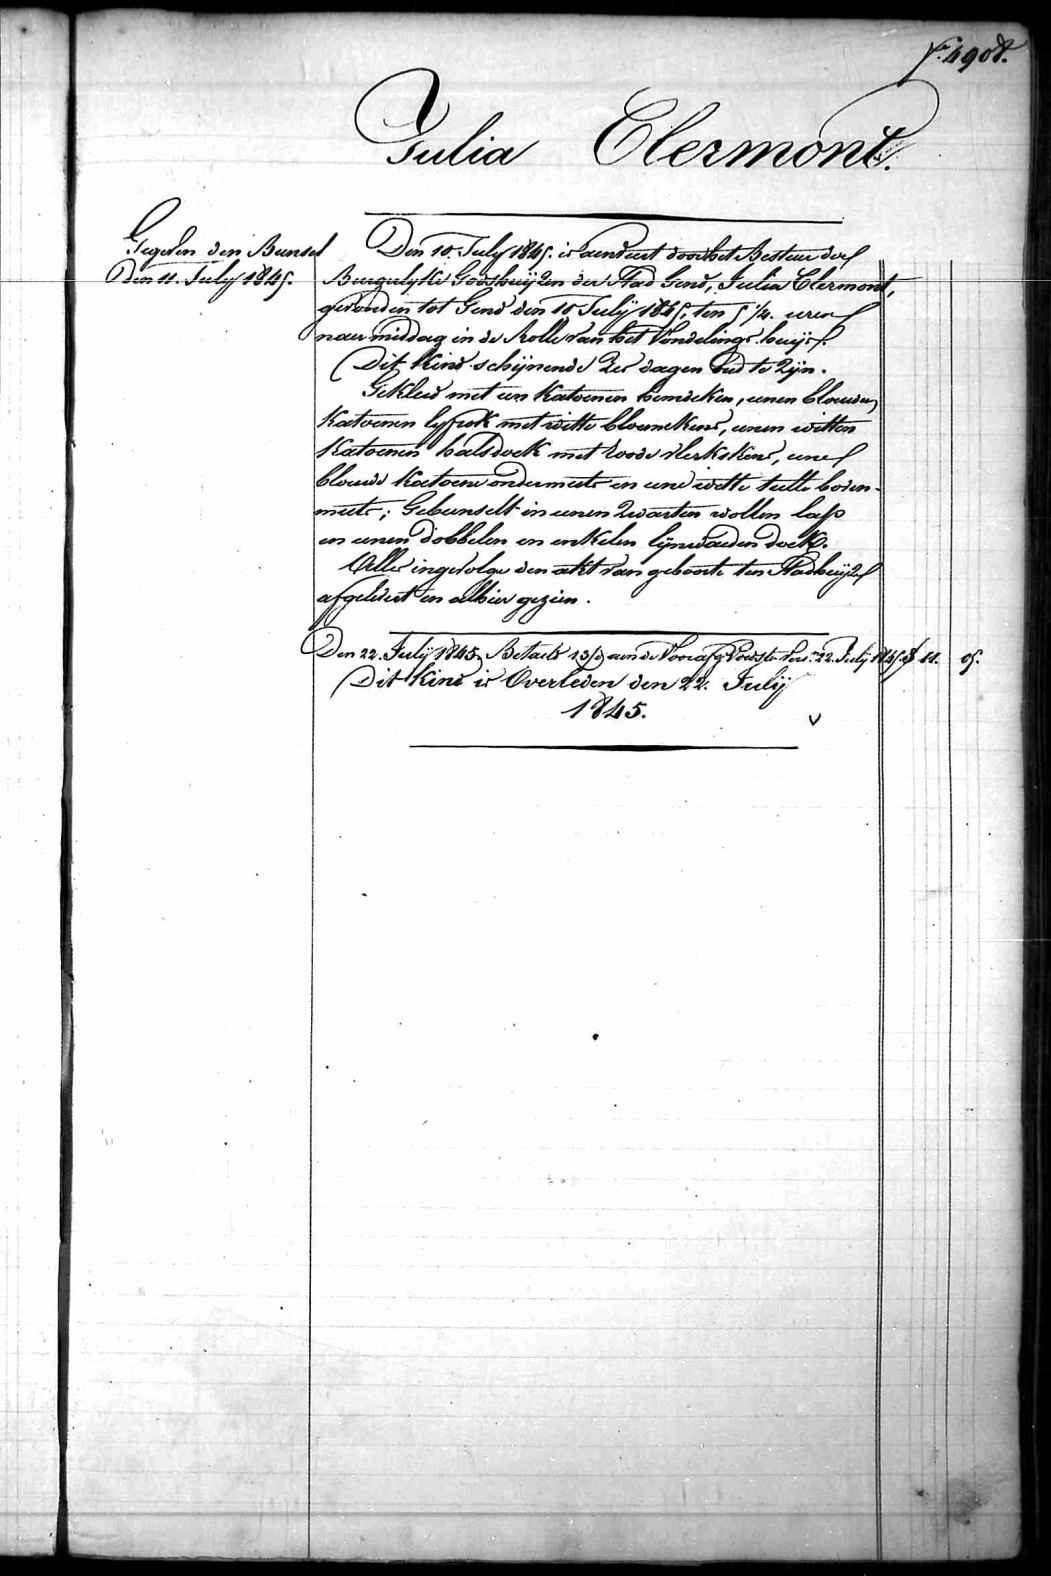 Julia Clermont.
Gegeven den Bunsel
Den 11. July 1845.
Den 10. July 1845. is aenveert door het Bestuer der
Burgerlyke Godshuyzen der Stad Gend, Julia Clermont,
gevonden tot Gend den 10 July 1845, ten 5 1/4. uren
naer middag in de Rolle van het Vondelings-huys.
Dit Kind schynende 2er dagen oud te Zyn.
Gekleed met een Katoenen hemdeken, eenen blouwen
Katoenen lyfrok met witte bloemekens, eenen witten
Katoenen halsdoek met roode vlerkskens, eene
blouwe Katoene ondermuts en eene witte tulle boven-
muts; Gebunselt in eenen Zwarten wollen lap
en eenen dobbelen en enkelen lynwaeden doek.
Alles ingevolge den akt van geboorte ten Stadhuyze
afgelevert en alhier gezien.
Den 22. July 1845, Betaelt aen de 22. July 1845. 11. 05.
Dit Kind is Overleden den 22. July
1845.